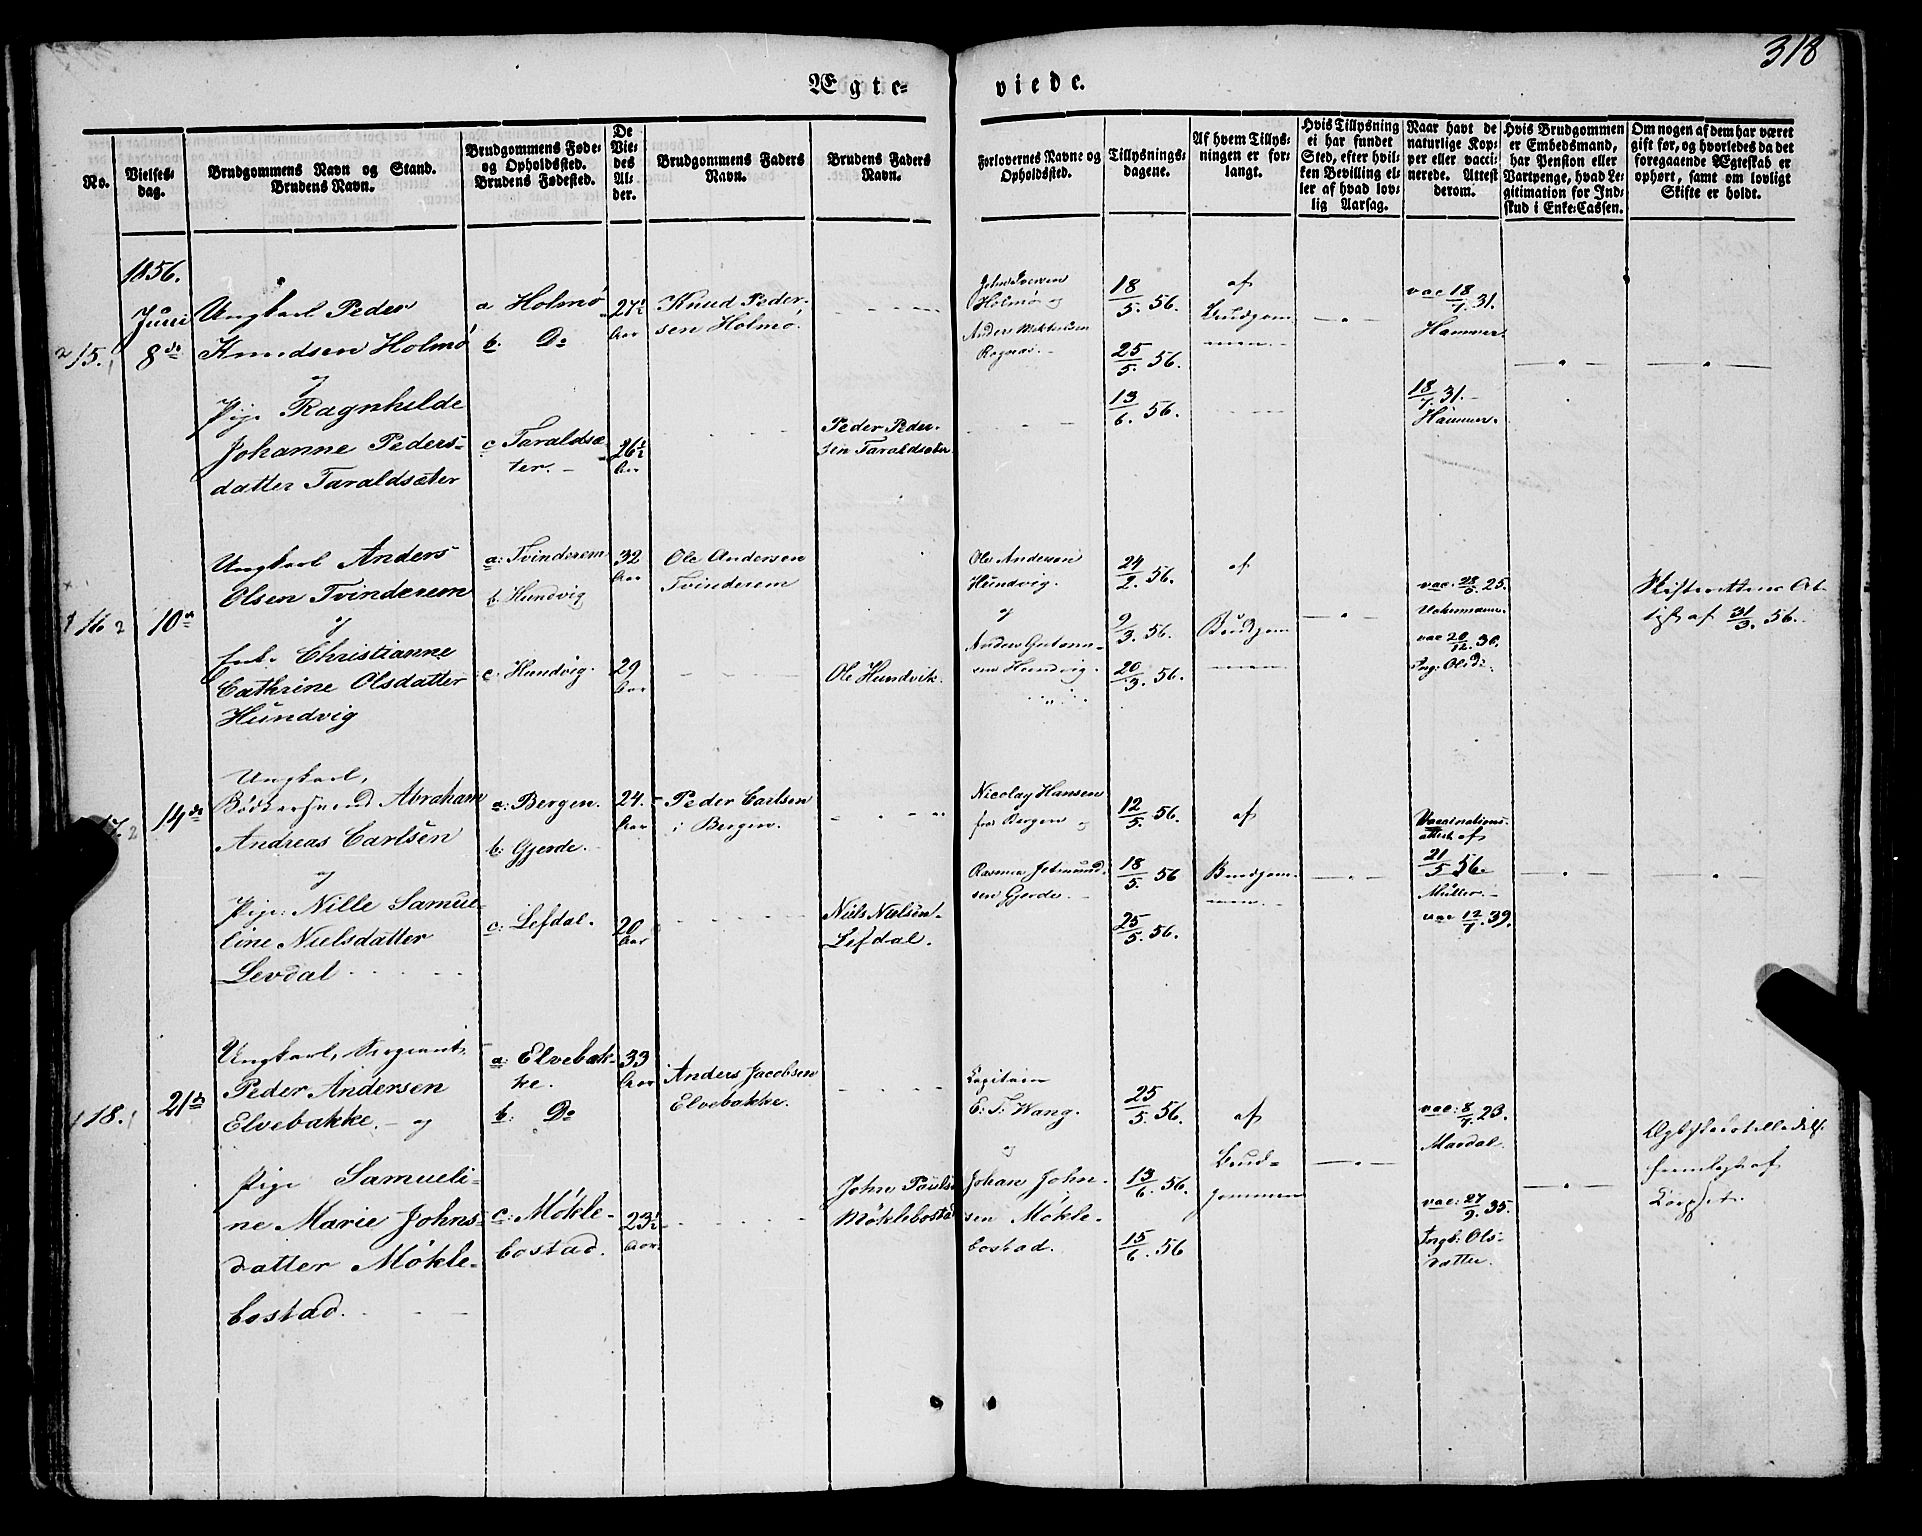 318
Ægte-
viede.
No.
Vielses-
dag.
Brudgommens Navn og Stand.
Brudens Navn.
Brudgommens Føde-
og Opholdssted.
Brudens Fødested.
De
Vie-
des
Al-
der.
Brudgommens Faders
Navn.
Brudens Faders
Navn.
Forlovernes Navne og
Opholdssted.
Tillysnings-
dagene.
Af hvem Tillys-
ningen er for-
langt.
Hvis Tillysning
ei har fundet
Sted, efter hvil-
ken Bevilling el-
ler af hvad lov-
lig Aarsag.
Naar havt de
naturlige Kop-
per eller vacci-
nerede. Attest
derom.
Hvis Brudgommen
er Embedsmand,
har Pension eller
Vartpenge, hvad Le-
gitimation for Ind-
skud i Enke-Cassen.
Om nogen af dem har været
gift før, og hvorledes da det
foregaaende Ægteskab er
ophørt, samt om lovligt
Skifte er holdt.
1856.
15.
Juni
8de
Ungkarl Peder
Knudsen Holmø
og
Pige Ragnhilde
Johanne Peders-
datter Taraldsæter
a Holmø
b. Do
c Taraldsæ-
ter.
27½
Aar
26½
Aar
Knud Peder-
sen Holmø.
Peder Peder-
sen Taraldsæter
John Iversen
Holmø og
Anders
18/5. 56.
25/5. 56.
13/6. 56.
af
Brudgom-
men.
vac 18/7. 31.
Hammer.
18/7. 31.
Hammer.
16
10de
Ungkarl Anders
Olsen Tvinderem
og
Christianne
Cathrine Olsdatter
Hundvig
a: Tvinderem
b. Hundvig
c. Hundvig.
32
Aar
29
Aar
Ole Andersen
Tvinderem
Ole Hundvik.
Ole Andersen
Hundvig.
og
Anders
sen Hundvig.
24/2. 56.
9/3. 56.
20/3. 56.
af
Brudgom-
men
vac: 28/6. 25.
vac 20/12. 30.
Ing: Olsd:
af 31/3. 56.
17.
14de
Ungkarl,
Bødkersvend Abraham
Andreas Carlsen
og
Pige: Nille Samue-
line Nielsdatter
Levdal
a: Bergen.
b: Gjerde.
c: Lefdal.
24.
Aar
20
Aar
Peder Carlsen
i Bergen.
Niels Nielsen
Lefdal.
Nicolay Hansen
fra Bergen og
Rasmus
sen Gjerde.
12/5. 56.
18/5. 56
25/5. 56.
af
Brudgom-
men.
Vaccinations-
attest af
21/5 56.
Müller.
vac 12/7. 39.
18.
21de
Ungkarl, Sergeant
Peder Andersen
Elvebakke. og
Pige Samueli-
ne Marie Johns-
datter Møkle-
bostad.
a: Elvebak-
ke.
b: Do
c: Møkle-
bostad.
33
Aar
23½
Aar
Anders Jacobsen
Elvebakke.
John Pauls.
Møklebostad
Capitain
E: T: Wang.
og
Johan John-
sen Møkle-
bostad.
25/5. 56.
13/6. 56.
15/6. 56
af
Brud-
gommen
vac: 8/7. 23.
Maodal.
vac: 27/9. 35.
Ingb: Ols-
datter.
af